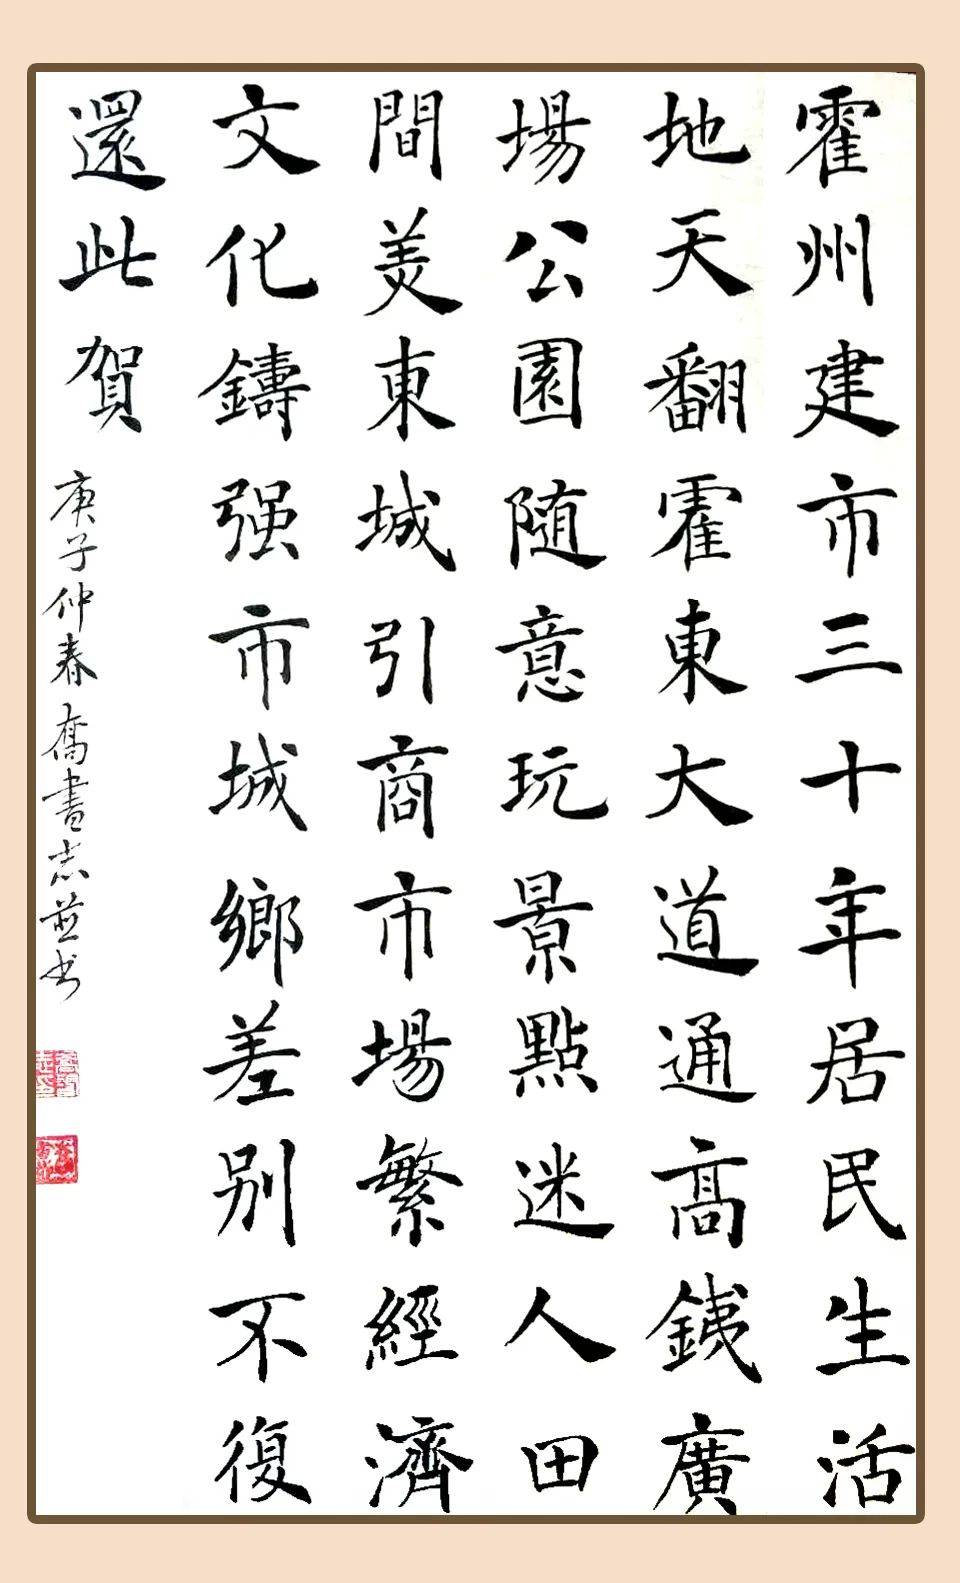 霍州建市三十年居民生活
地天翻霍東大道通高銕廣
場公園随意玩景點迷人田
間美東城引商市場繁經濟
文化鑄强市城鄉差别不復
還此賀
庚子仲春喬書志並书